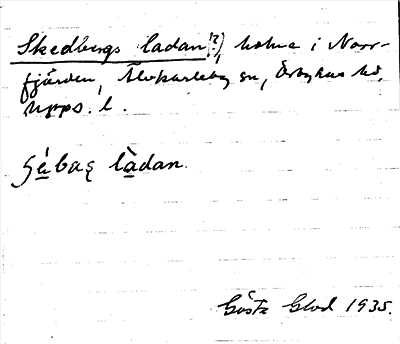 Skedbergs ladan(?), holme i Norr-
fjärden, Älvkarleby sn, Örbyhus hd,
Upps. l.
ladan.
Gösta Glod 1935.